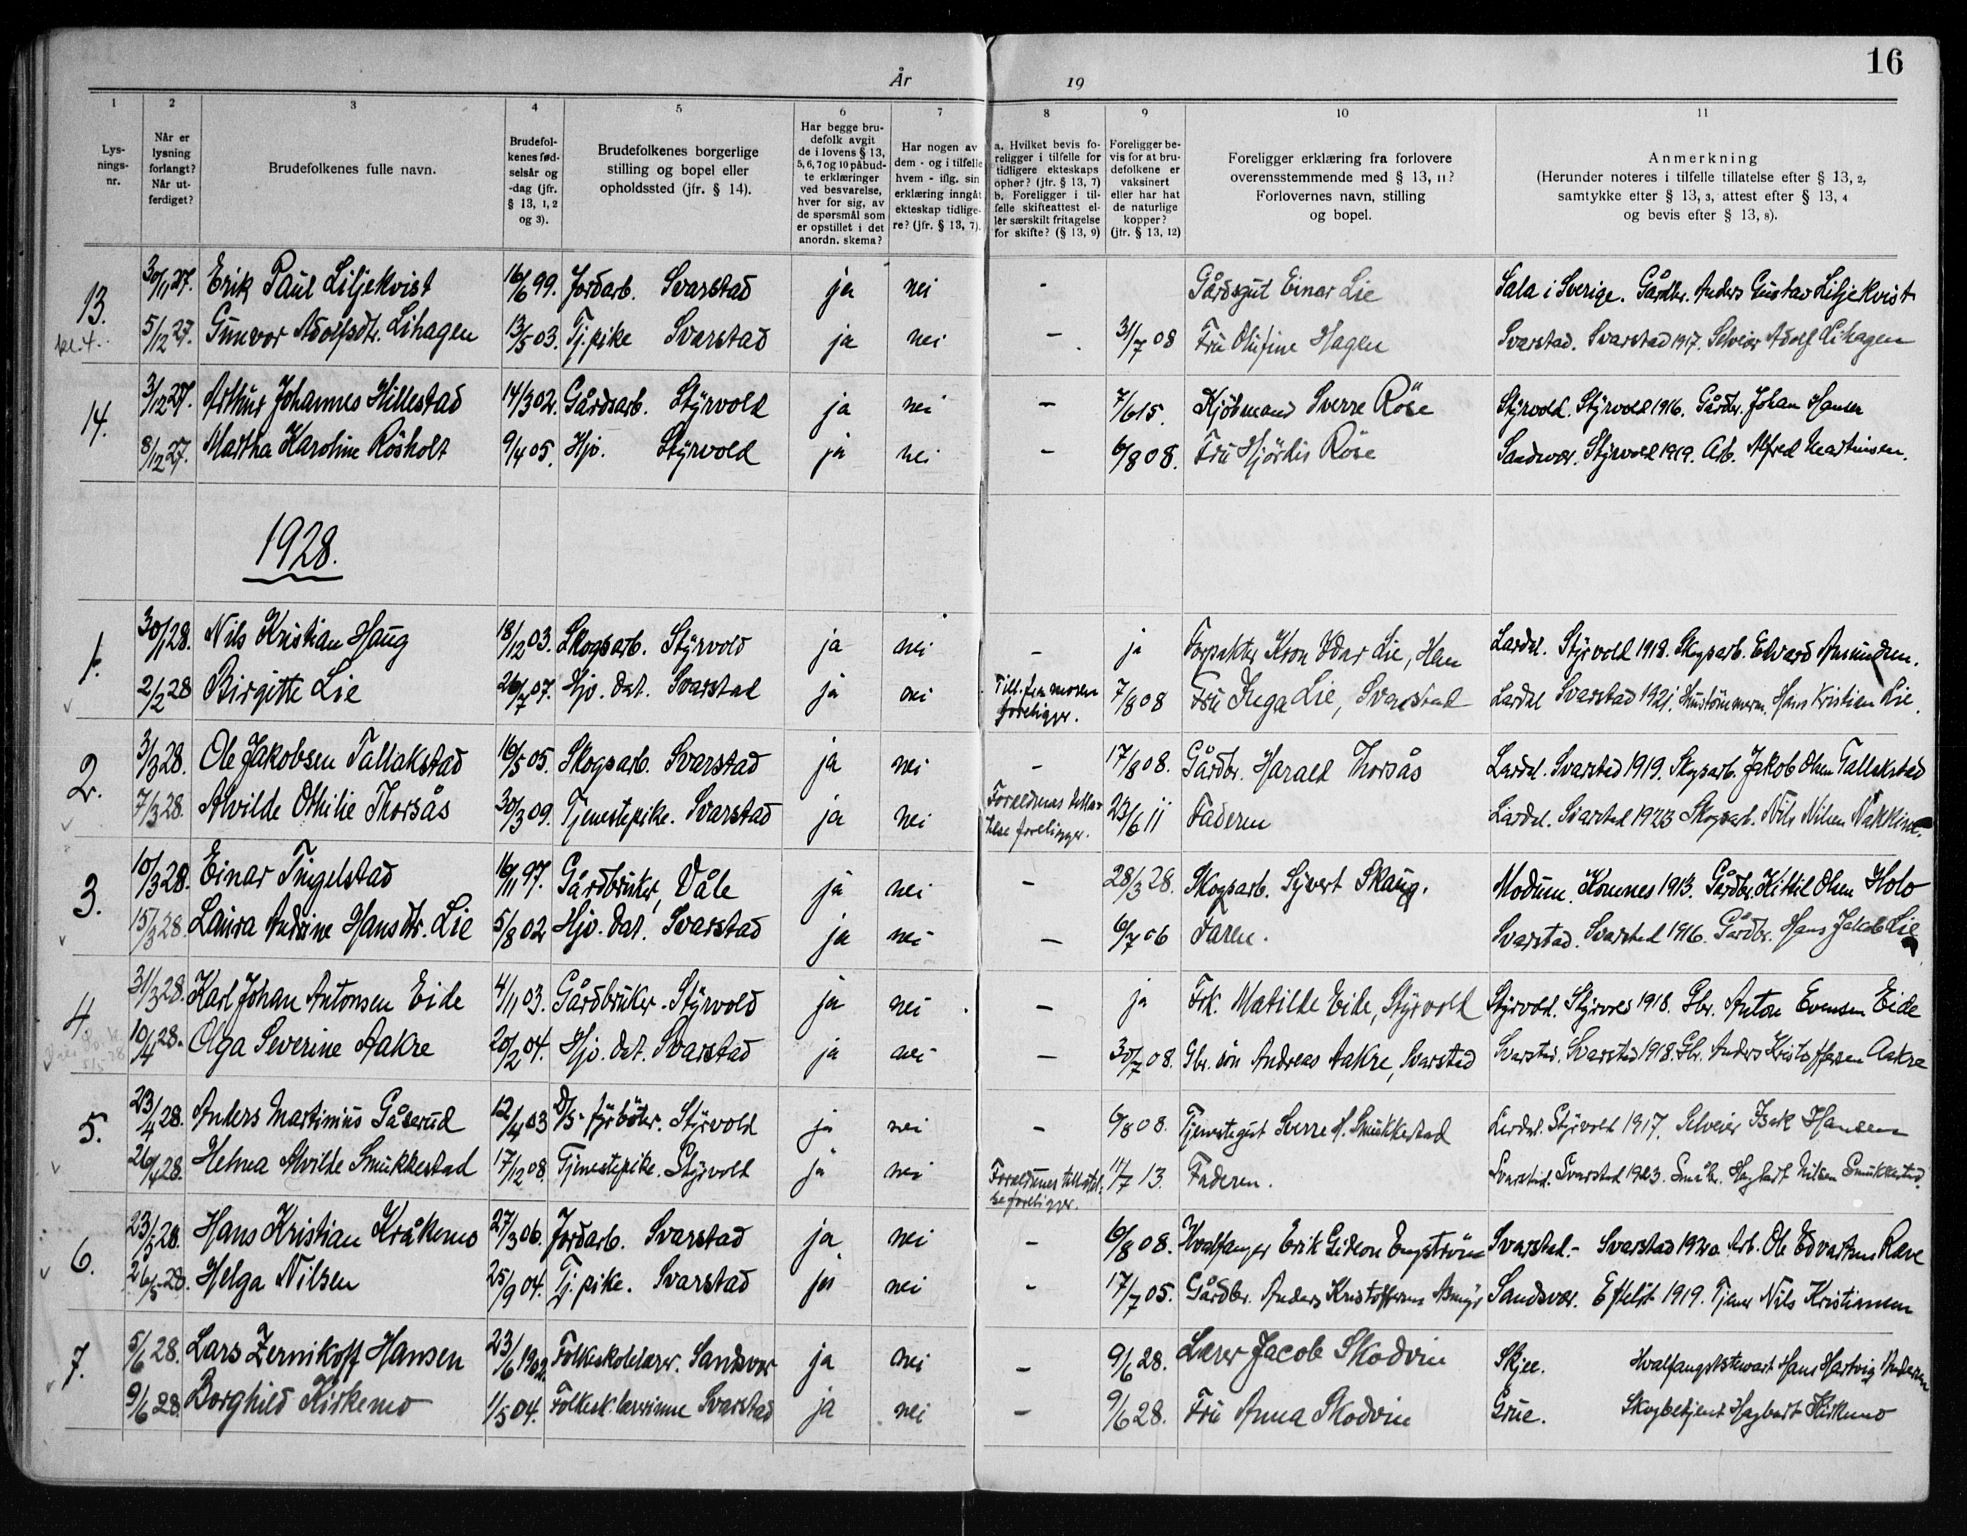 16
År 19
1 2 3 4 5 6 7 8 9 10 11
Lys-
nings-
nr.
Når er
lysning
forlangt?
Når ut-
ferdiget?
Brudefolkenes fulle navn.
Brudefol-
kenes fød-
selsår og
-dag (jfr.
§ 13, 1, 2
og 3).
Brudefolkenes borgerlige
stilling og bopel eller
opholdssted (jfr. § 14).
Har begge bru-
defolk avgit
de i lovens § 13,
5, 6, 7 og 10 påbud-
te erklæringer
ved besvarelse,
hver for sig, av
de spørsmål som
er opstillet i det
anordn. skema?
Har nogen av
dem - og i tilfelle
hvem - iflg. sin
erklæring inngåt
ekteskap tidlige-
re? (jfr. § 13, 7).
a. Hvilket bevis fo-
religger i tilfelle for
tidligere ekteskaps
ophør? (jfr. § 13, 7)
b. Foreligger i til-
felle skifteattest el-
ler særskilt fritagelse
for skifte? (§ 13, 9)
Foreligger be-
vis for at bru-
defolkene er
vaksinert
eller har hat
de naturlige
kopper?
(jfr. § 13, 12)
Foreligger erklæring fra forlovere
overensstemmende med § 13, 11?
Forlovernes navn, stilling
og bopel.
Anmerkning
(Herunder noteres i tilfelle tillatelse efter § 13, 2,
samtykke efter § 13, 3, attest efter § 13, 4
og bevis efter § 13, 8).
13. 30/11 27. Erik Paul Liljekvist 16/6 99. Jordarb. Svarstad ja nei - Gårdsgut Einar Lie Sala i Sverige. Gårdbr. Anders Gustav Liljekvist
kl. 4. 5/12 27. Gunvor Adolfsdtr. Lihagen 13/5 03. Tj.pike Svarstad ja nei - 31/7 08 Fru Olufine Hagen Svarstad. Svarstad 1917. Selveier Adolf Lihagen
14. 3/12 27. Arthur Johannes Hillestad 14/3 02. Gårdsarb. Styrvold ja nei - 7/6 15. Kjøbmand Sverre Röse Styrvold. Styrvold 1916. Gårdbr. Johan Hansen
8/12 27. Martha Karoline Rösholt 9/4 05. Hjv. Styrvold ja nei - 6/8 08. Fru Hjördis Röse Sandsvær. Styrvold 1919. Arb. Alfred Martinsen.
1928.
1. 30/1 28. Nils Kristian Haug 18/12 03. Skogsarb. Styrvold ja nei - ja Forpakter Kron Odar Lie, Hem Lardal. Styrvold 1918. Skogsarb. Edvard Amundsen.
2/2 28 Birgitte Lie 26/7 07. Hjv. dat. Svarstad ja nei Till. fra moren 7/8 08 Fru Inga Lie, Svarstad Lardal Svarstad 1921. Hustömmerm. Hans Kristian Lie.
foreligger.
2. 3/3 28. Ole Jakobsen Tallakstad 16/5 05. Skogsarb. Svarstad ja nei - 17/8 08. Gårdbr. Harald Thorsås Lardal. Svarstad 1919. Skogsarb. Jakob Olsen Tallakstad
7/3 28. Alvilde Othilie Thorsås 30/3 09. Tjenestepike. Svarstad ja nei Foreldrenes tilla- 23/6 11 Faderen Lardal. Svarstad 1923 Skogsarb. Nils Nilsen
telse foreligger.
3. 10/3 28. Einar Tingelstad 16/11 97. Gårdbruker, Våle ja nei - 28/3 28. Skogsarb. Syvert Skaug. Modum. Komnes 1913. Gårdbr. Kittil Olsen Holo
15/3 28. Laura Andrine Hansdtr. Lie 5/8 02 Hjv. dat. Svarstad ja nei - 6/7 06 Faren. Svarstad. Svarstad 1916. Gårdbr. Hans Jakob Lie
4. 31/3 28. Karl Johan Antonsen Eide 4/11 03. Gårdbruker. Styrvold ja nei - ja Frk. Matilde Eide, Styrvold Styrvold. Styrvold 1918. Gbr. Anton Evensen Eide
10/4 28. Olga Severine Aakre 20/2 04. Hjv. dat. Svarstad ja nei - 30/7 08. Gbr. sön Andreas Aakre, Svarstad Svarstad. Svarstad 1918. Gbr. Anders Kristoffersen Aakre
5. 23/4 28. Anders Martinius Gåserud 12/4 03 D/S- fyrböter. Styrvold ja nei - 6/8 08. Tjenestegut Sverre H. Smukkestad Lardal. Styrvold 1917. Selveier Isak Hansen
26/4 28. Helma Alvilde Smukkestad 17/12 08. Tjenestepike. Styrvold ja nei Foreldrenes tillatel- 11/7 13. Faderen. Svarstad. Svarstad 1923. Småbr. Hagbart Nilsen Smukkestad.
se foreligger.
6. 23/5 28. Hans Kristian Kråkemo 27/3 06. Jordarb. Svarstad ja nei - 6/8 08. Hvalfanger Erik Gideon Engström Svarstad. - Svarstad 1920. Arb. Ole Edvartsen Rave
26/5 28. Helga Nilsen 25/9 04. Tj.pike. Svarstad ja nei - 17/7 05. Gårdbr. Anders Kristoffersen Sandsvær. Efteløt 1919. Tjener Nils Kristiansen
7. 5/6 28. Lars Zernikoff Hansen 23/6 1902. Folkeskolelærer. Sandsvær ja nei - 9/6 28. Lærer Jacob Skodvin Skjee. Hvalfangststewart Hans Hartvig Andersen
9/6 28. Borghild Kirkemo 1/5 04. Folkesk. lærerinne Svarstad ja nei - 9/6 28. Fru Anna Skodvin Grue. Skogbetjent Hagbart Kirkemo